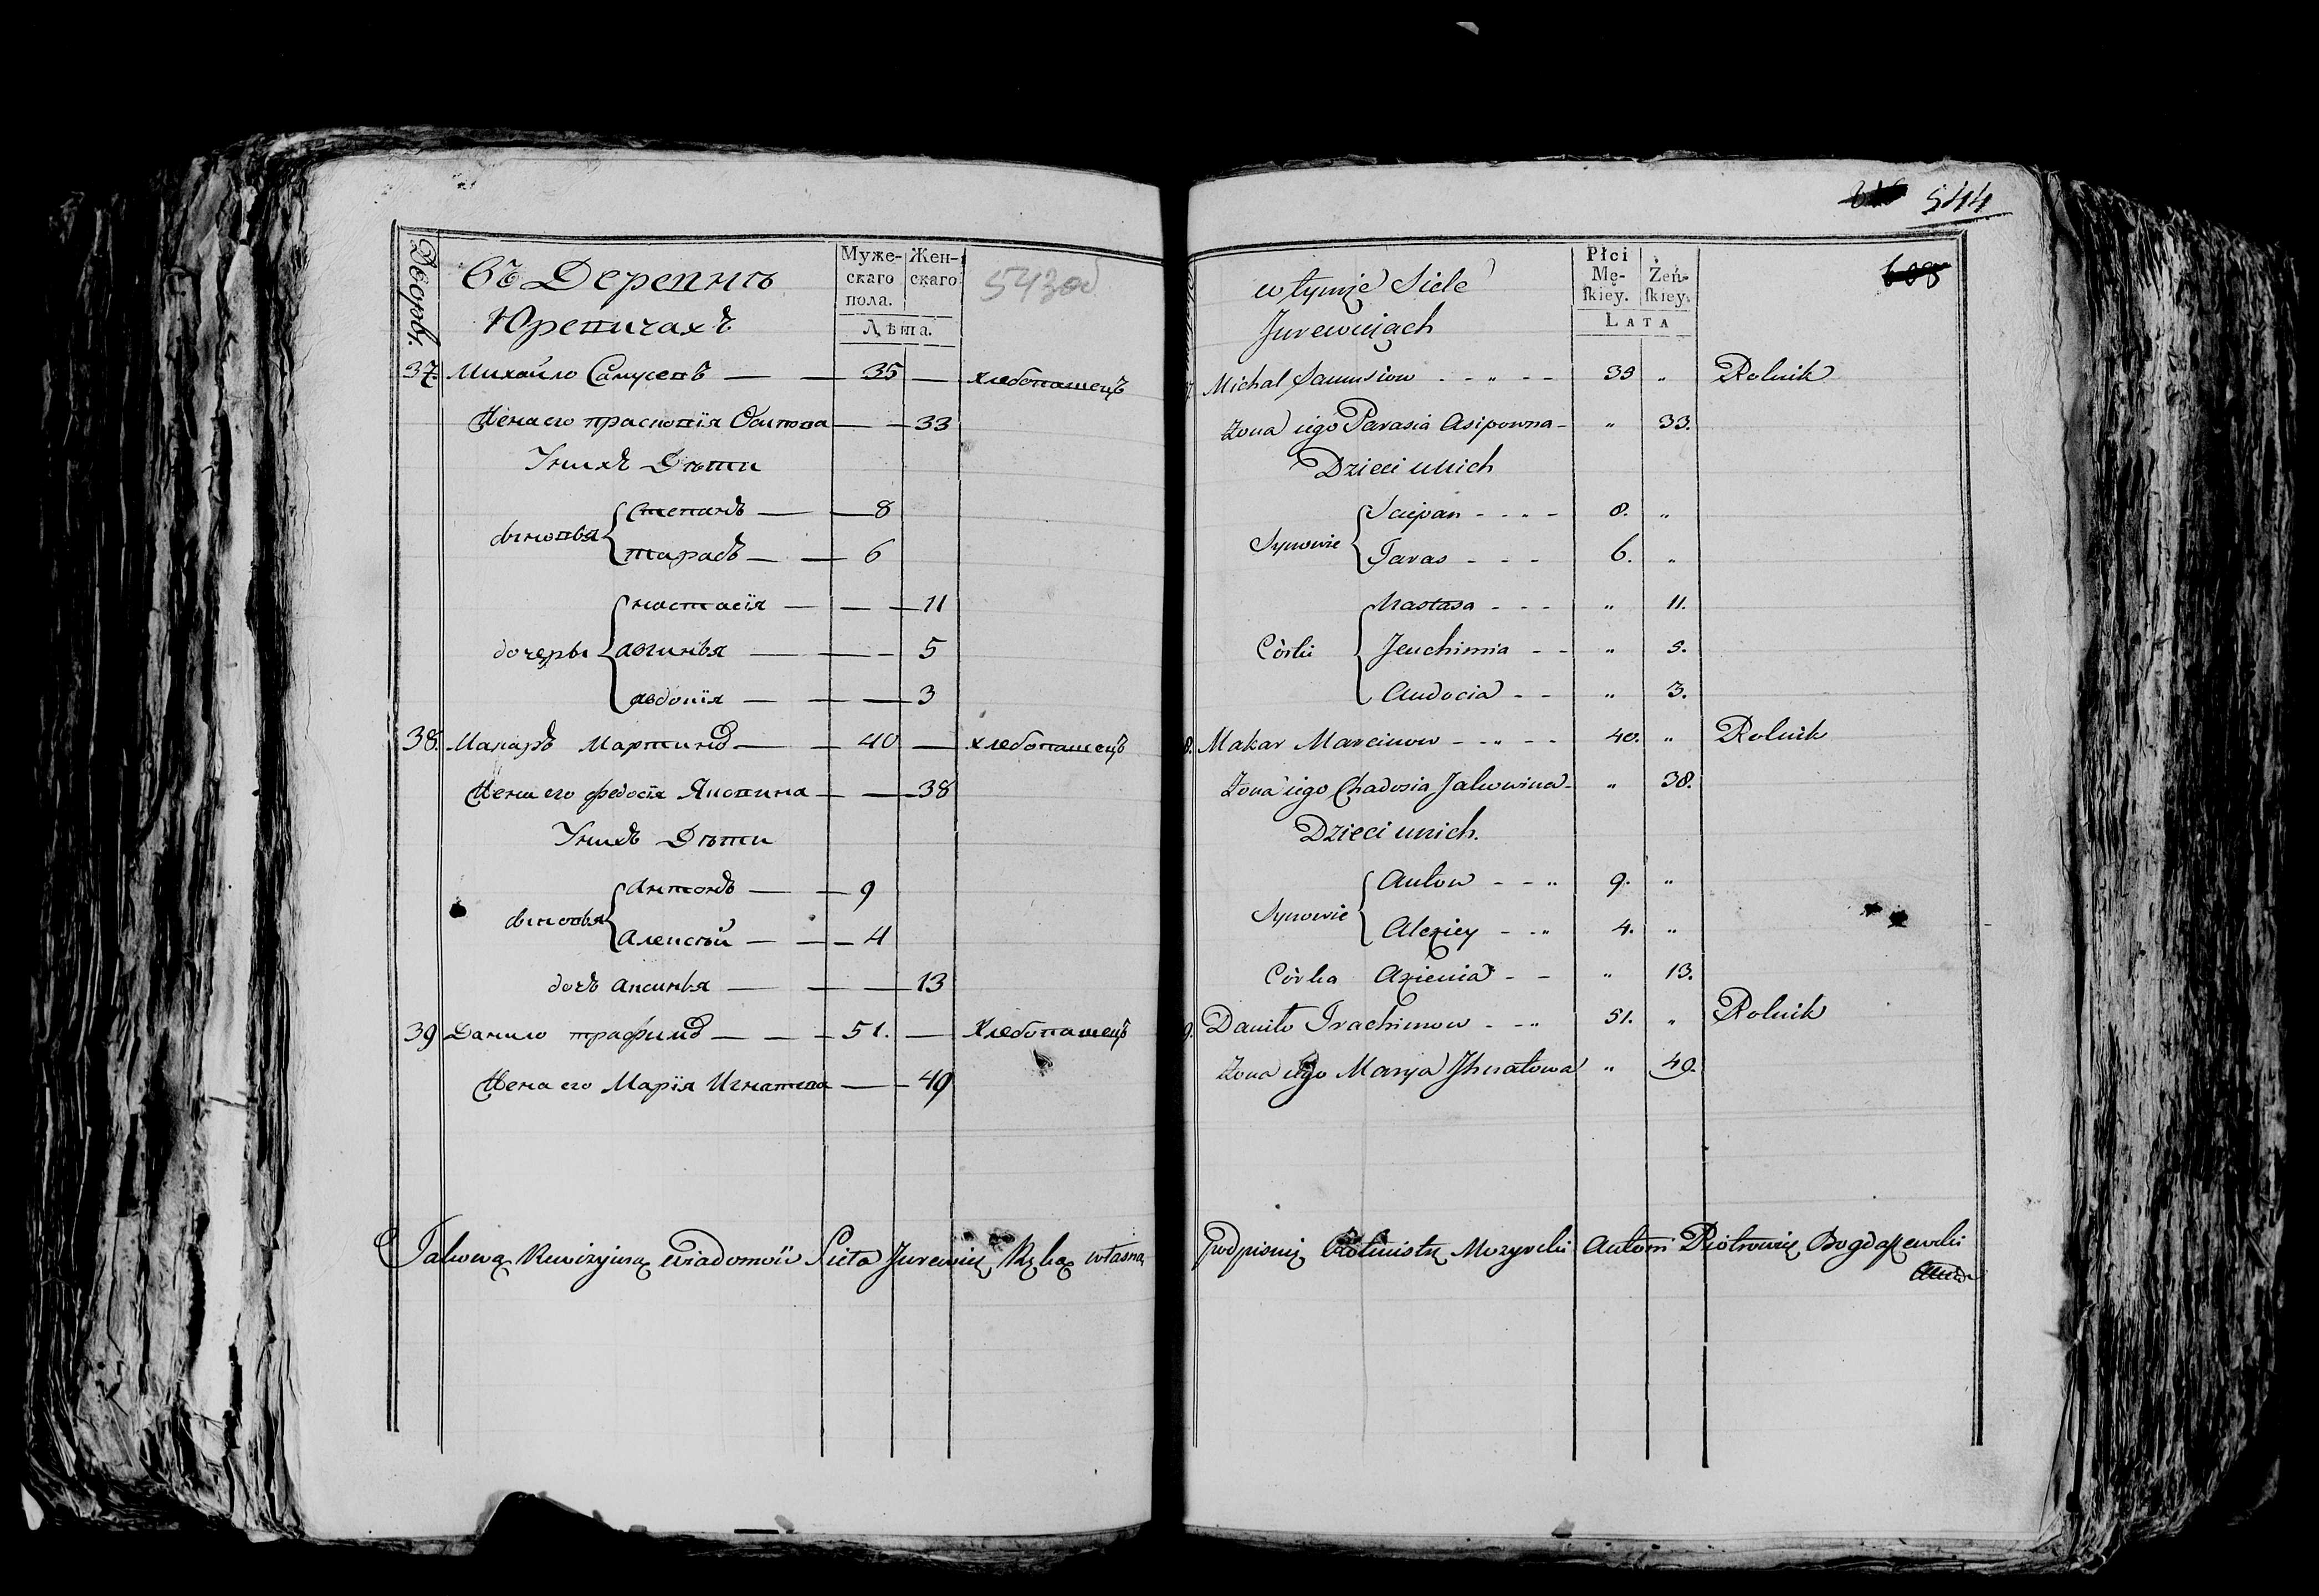 Дворовъ.
Въ Деревнѣ
Юревичахъ
Муже-
скаго
пола.
Жен-
скаго
Лѣта.
543об
37. Михайло Самусевъ — — 35 — хлебопашецъ
Жена его Прасковія Осипова — — 33
У нихъ Дѣти
сыновья
Степанъ — — 8
Тарасъ — — 6
дочеры
Настасія — — — 11
Авгинья — — — 5
Авдотія — — — 3
38. Макаръ Мартиновъ — — 40 — хлебопашецъ
Жена его Федосія Яковина — — 38
У нихъ Дѣти
сыновья
Антонъ — — 9
Алексѣй — — — 4
дочь Аксинья — — — 13
39 Данило Трафимовъ — — — 51. — Хлебопашецъ
Жена его Марія Игнатева — — 49
Takową Rewizyiną Wiadomość Sieła Jurewicz Ręką własną
544
608
w tymże Siele
Jurewiczach
Płci
Mę-
ſkiey.
Żeń-
ſkiey.
LATA
Michał Samusiow - - „ - - 35 „ Rolnik
Żona iego Parasia Asipowna - „ 33.
Dzieci u nich
Synowie
Sciepan - - - - 8. „
Taras - - - 6. „
Córki
Nastasa - - - „ 11.
Jeuchimia - - „ 5.
Audocia - - „ 3.
8. Makar Marcinow - - „ - - 40. „ Rolnik
Żona iego Chadosia Jakowina - „ 38.
Dzieci u nich.
Synowie
Anton - - „ 9. „
Alexiey - - „ 4. „
Córka Axienia - - „ 13.
9. Daniło Trachimow - - „ 51. „ Rolnik
Żona iego Marya Ihnatowa „ 49.
podpisuię Rotmistrz Mozyrski Antoni Piotrowicz Bogdaszewski